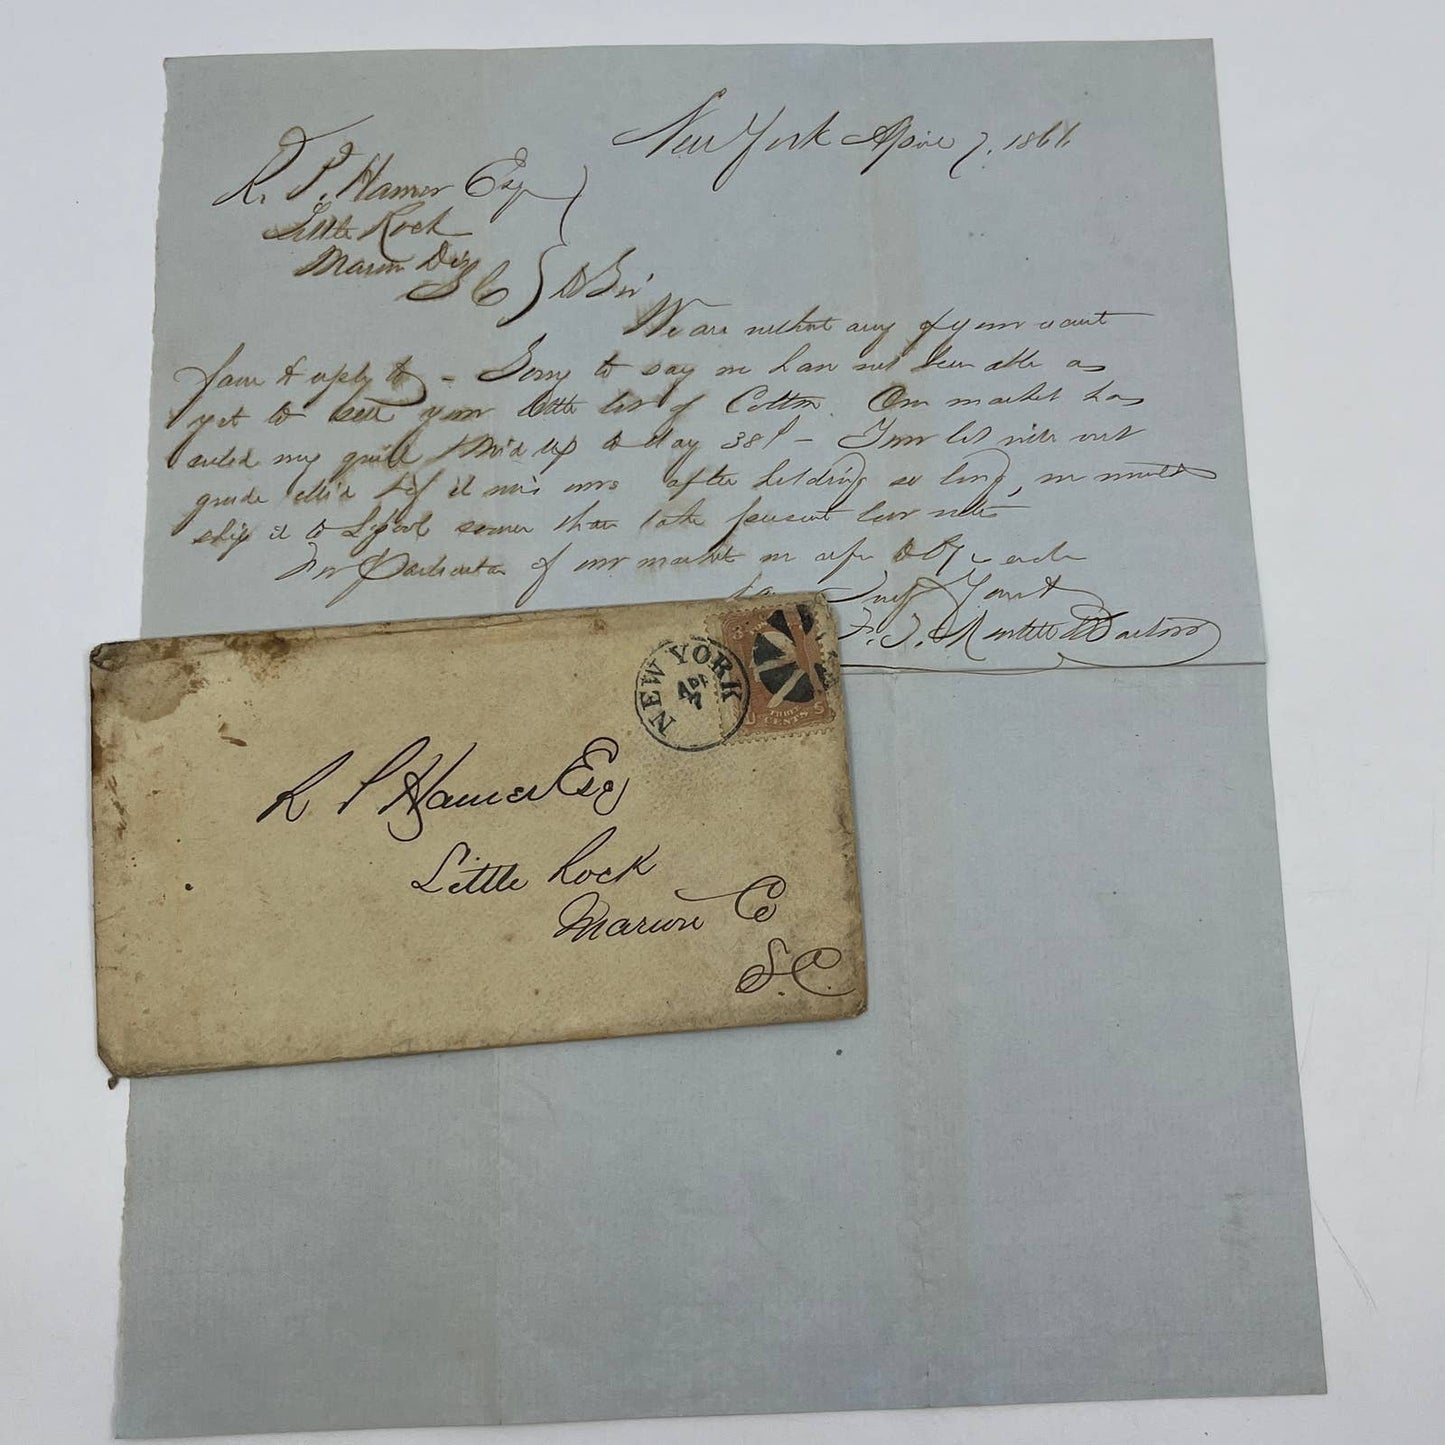 New York April 7. 1866
R. P. Hamer Esq
Little Rock
Marion Dis
S C } D Sir
We are without any of your
favor to reply to - Sorry to say we have not been able as
yet to sell your little lot of Cotton. Our market has
ruled very quiet Mid up to day 38¢ - Your lot will not
grade Mid & if it was ours after holding so long, we would
ship it to L'pool sooner than take present low rates
For Particulars of our market we refer to
Yours
NEW YORK
APL
7
THREE
CENTS
R P Hamer Esq
Little Rock
Marion Co
S.C.